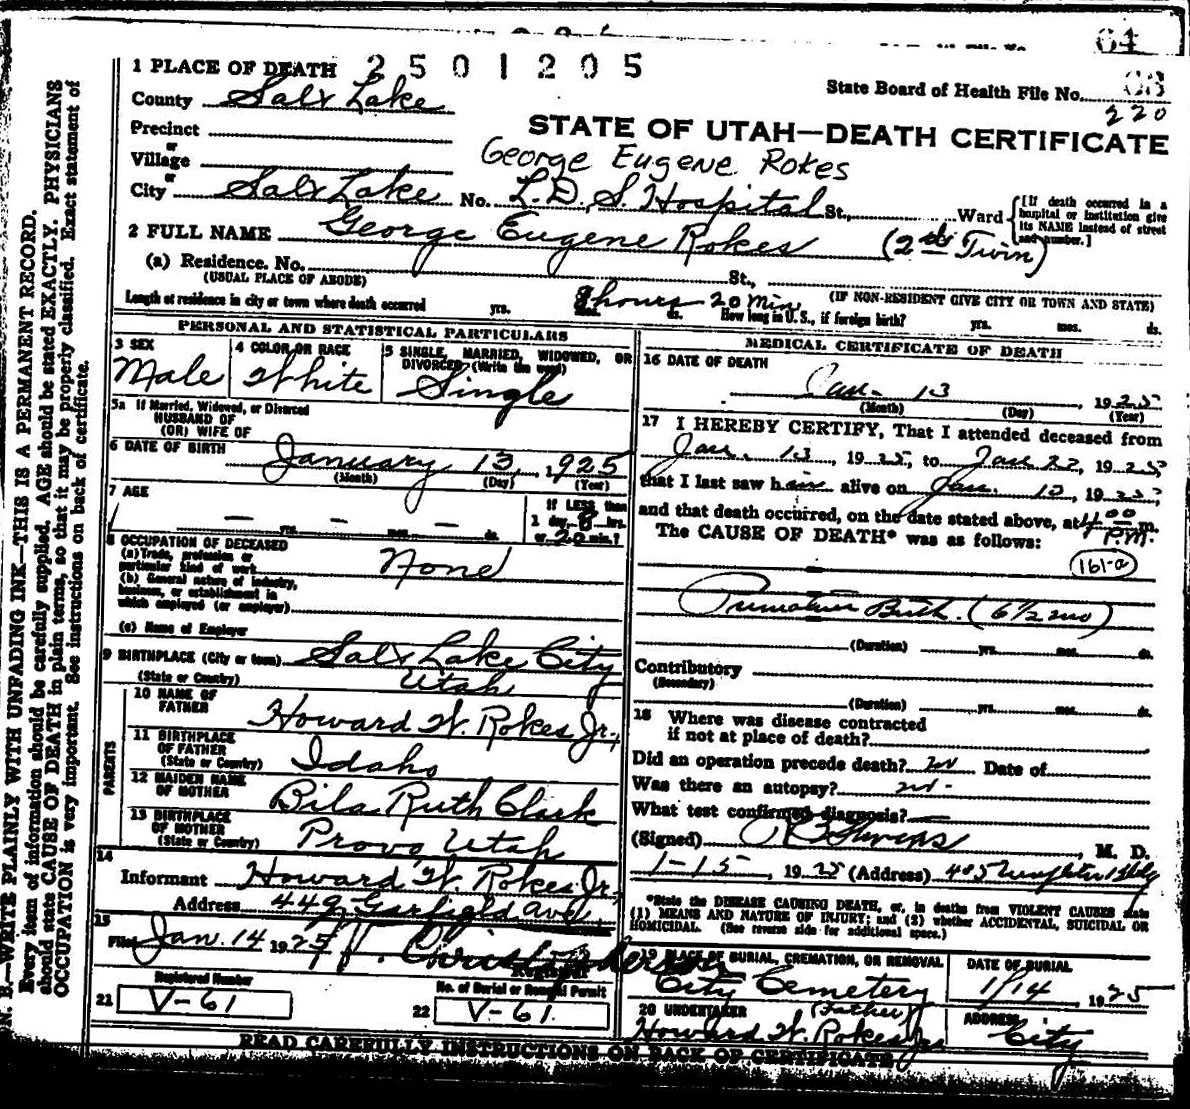 64
2501205
1 PLACE OF DEATH
State Board of Health File No.
220
County Salt Lake
STATE OF UTAH—DEATH CERTIFICATE
Precinct
or
George Eugene Rokes
Village
or
City Salt Lake No. L.D.S. Hospital St., Ward
[If death occurred in a hospital or institution give its NAME instead of street and number.]
2 FULL NAME George Eugene Rokes (2nd Twin)
(a) Residence. No. St.,
(USUAL PLACE OF ABODE)
(IF NON-RESIDENT GIVE CITY OR TOWN AND STATE)
Length of residence in city or town where death occurred yrs. mos. ds. 8 hours 20 Min How long in U. S., if foreign birth? yrs. mos. ds.
PERSONAL AND STATISTICAL PARTICULARS
3 SEX
Male
4 COLOR OR RACE
White
5 SINGLE, MARRIED, WIDOWED, OR DIVORCED (Write the word)
Single
5a If Married, Widowed, or Divorced
HUSBAND OF
(OR) WIFE OF
6 DATE OF BIRTH January 13, 1925
(Month) (Day) (Year)
7 AGE
— yrs. — mos. — ds.
If LESS than
1 day, 8 hrs.
or 20 min.?
8 OCCUPATION OF DECEASED
(a) Trade, profession or
particular kind of work None
(b) General nature of industry,
business, or establishment in
which employed (or employer)
(c) Name of Employer
9 BIRTHPLACE (City or town) Salt Lake City
(State or Country) Utah
PARENTS
10 NAME OF FATHER Howard W. Rokes Jr.
11 BIRTHPLACE OF FATHER
(State or Country) Idaho
12 MAIDEN NAME OF MOTHER Bila Ruth Clark
13 BIRTHPLACE OF MOTHER
(State or Country) Provo, Utah
14
Informant Howard W. Rokes Jr.
Address 449 Garfield Ave.
15
Filed Jan. 14 1925
Registrar
Registered Number
21 V-61
No. of Burial or Removal Permit
22 V-61
MEDICAL CERTIFICATE OF DEATH
16 DATE OF DEATH
Jan- 13, 1925
(Month) (Day) (Year)
17 I HEREBY CERTIFY, That I attended deceased from
Jan. 13, 1925, to Jan 22, 1925
that I last saw him alive on Jan. 13, 1925
and that death occurred, on the date stated above, at 4 00 P.M. m.
The CAUSE OF DEATH* was as follows:
161-a
Premature Birth. (6 1/2 mo)
(Duration) yrs. mos. ds.
Contributory
(Secondary)
(Duration) yrs. mos. ds.
18 Where was disease contracted
if not at place of death?
Did an operation precede death? no Date of
Was there an autopsy? no.
What test confirmed diagnosis?
(Signed) , M. D.
1-15, 1925 (Address) 405 Bldg
*State the DISEASE CAUSING DEATH, or, in deaths from VIOLENT CAUSES state
(1) MEANS AND NATURE OF INJURY; and (2) whether ACCIDENTAL, SUICIDAL OR
HOMICIDAL. (See reverse side for additional space.)
19 PLACE OF BURIAL, CREMATION, OR REMOVAL
City Cemetery
DATE OF BURIAL
1/14, 1925
20 UNDERTAKER (Father)
Howard W. Rokes Jr
ADDRESS
City
READ CAREFULLY INSTRUCTIONS ON BACK OF CERTIFICATE
N. B.—WRITE PLAINLY WITH UNFADING INK—THIS IS A PERMANENT RECORD.
Every item of information should be carefully supplied. AGE should be stated EXACTLY. PHYSICIANS
should state CAUSE OF DEATH in plain terms, so that it may be properly classified. Exact statement of
OCCUPATION is very important. See instructions on back of certificate.